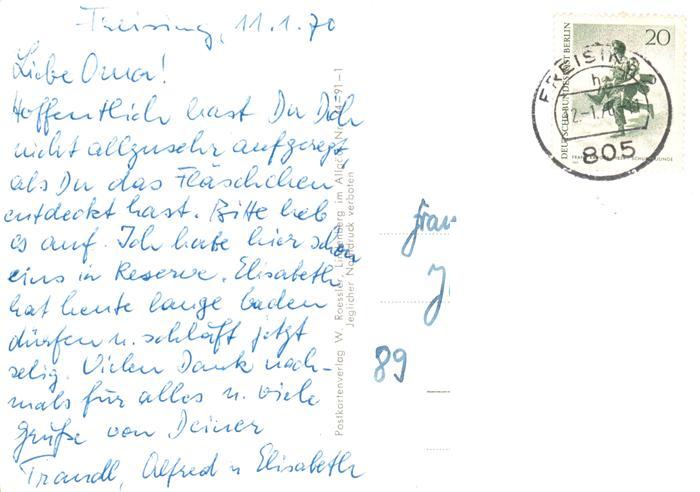 Freising, 11.1.70
Liebe Oma!
Hoffentlich hast Du Dich
nicht allzusehr aufgeregt
als Du das Fläschchen
entdeckt hast. Bitte heb
es auf. Ich habe hier schon
eins in Reserve. Elisabeth
hat heute lange baden
dürfen u. schläft jetzt
selig. Vielen Dank noch-
mals für alles u. viele
Grüße von Deiner
Traudl, Alfred u Elisabeth
Postkartenverlag W. Roessler, im Allgäu
Jeglicher Nachdruck verboten
20
DEUTSCHE BUNDESPOST BERLIN
FREISING
805
Frau
89